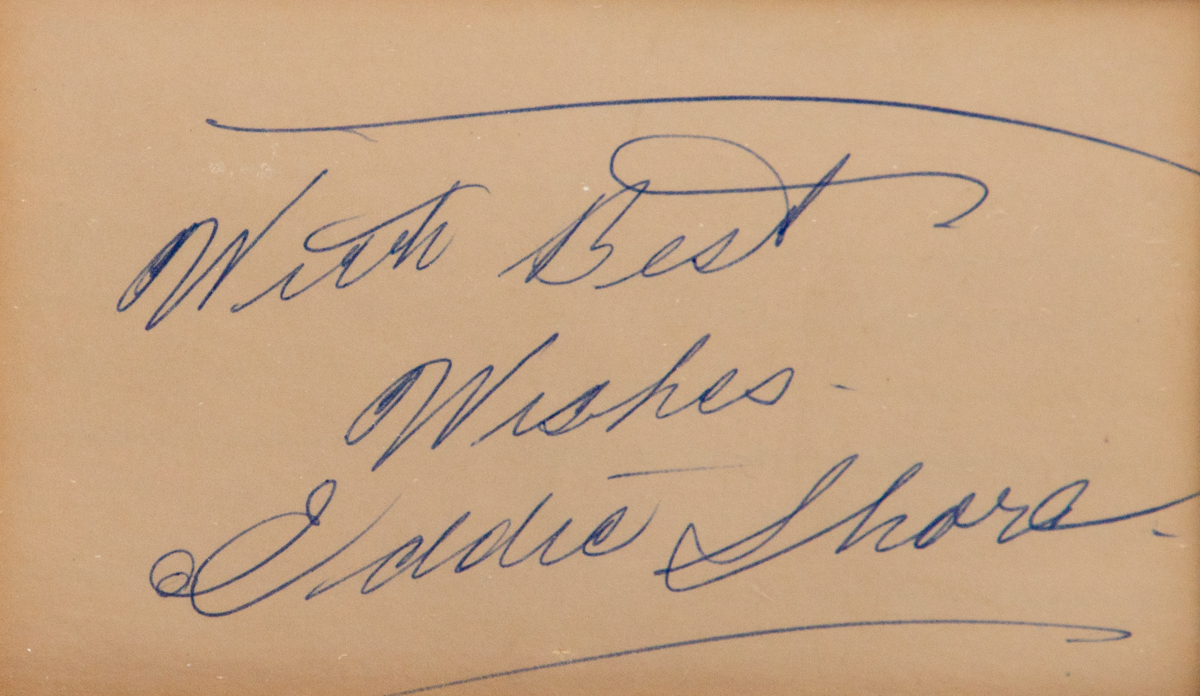 With Best
Wishes -
Eddie Shore.